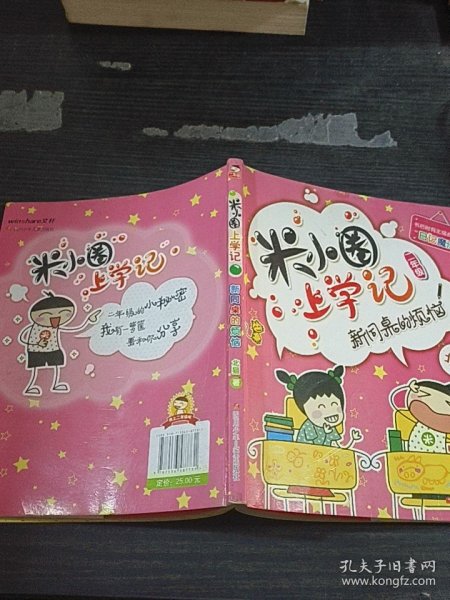 winshare文轩
米小圈
上学记
二年级的小秘密
我有一箩筐
要和你分享
定价：25.00元
米小圈
上学记
新同桌的烦恼
北猫 著
四川少年儿童出版社
米小圈
上学记
二年级
新同桌的烦恼
米
孔夫子旧书网
www.kongfz.com